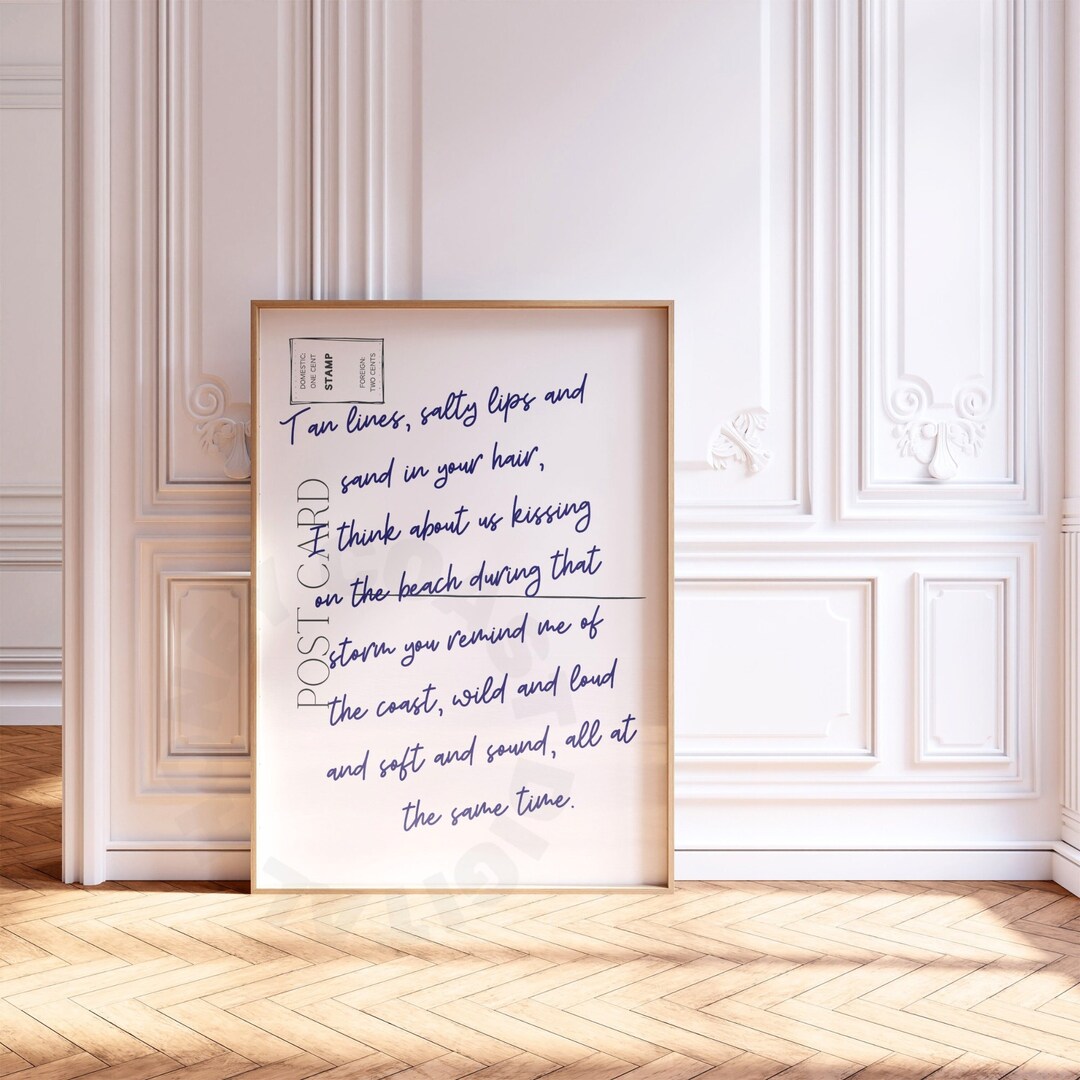 DOMESTIC:
ONE CENT
STAMP
FOREIGN:
TWO CENTS
POST CARD
Tan lines, salty lips and
sand in your hair,
I think about us kissing
on the beach during that
storm you remind me of
the coast, wild and loud
and soft and sound, all at
the same time.